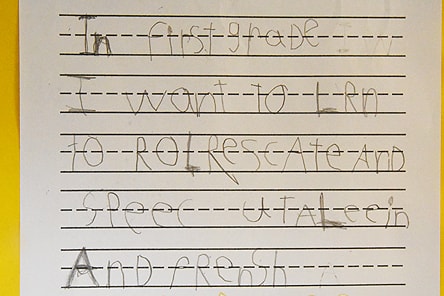 In first grade
I want to LRN
to ROLReSCAte AND
SPeec UTALeein
AND fRENSh